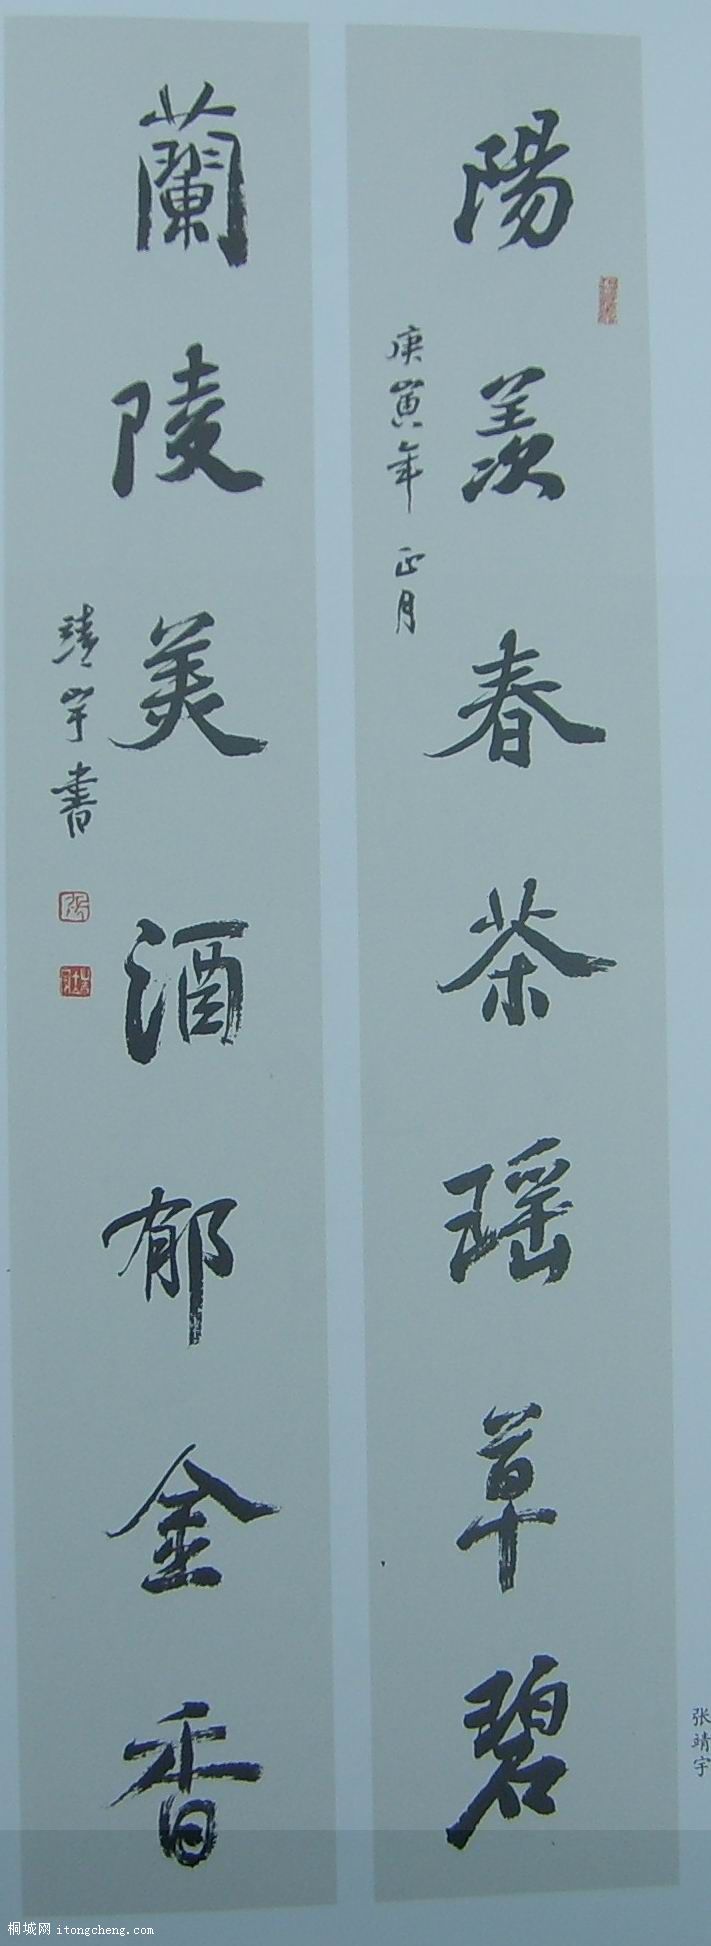 陽羨春茶瑶草碧
庚寅年正月
蘭陵美酒郁金香
靖宇書
张靖宇
桐城网 itongcheng.com